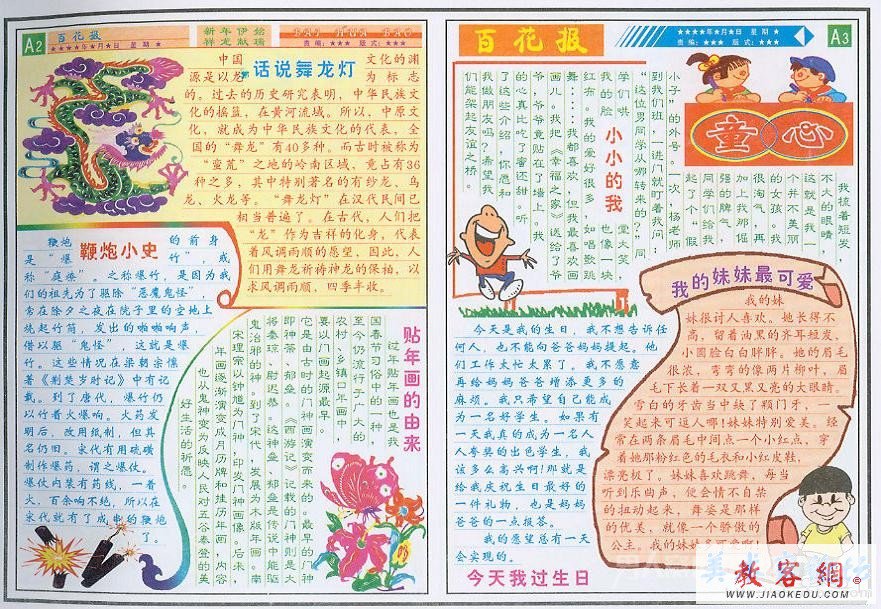 A2
百花报
★★★★年★月★日 星期 ★
新年伊始
祥龙献瑞
BAI HUA BAO
责编：★★★ 版式：★★★
话说舞龙灯
中国文化的渊
源是以龙为标志
的。过去的历史研究表明，中华民族文
化的摇篮，在黄河流域。所以，中原文
化，就成为中华民族文化的代表，全
国的“舞龙”有40多种。而古时被称为
“蛮荒”之地的岭南区域，竟占有36
种之多，其中特别著名的有纱龙、鸟
龙、火龙等。“舞龙灯”在汉代民间已
相当普遍了。在古代，人们把
“龙”作为吉祥的化身，代表
着风调雨顺的愿望，因此，人
们用舞龙祈祷神龙的保祐，以
求风调雨顺，四季丰收。
鞭炮小史
鞭炮的前身
是“爆竹”，或
称“庭燎”。之称爆竹，是因为我
们的祖先为了驱除“恶魔鬼怪”，
常在除夕之夜在院子里的空地上
烧起竹筒，发出的啪啪响声，
借以驱“鬼怪”，这就是爆
竹。这些情况在梁朝宗懔
著《荆楚岁时记》中有记
载。到了唐代，爆竹仍
以竹着火爆响。火药发
明后，改用纸制，但其
名仍旧。宋代有用硫磺
制作爆药，谓之爆仗。
爆仗内装有药线，一着
火，百余响不绝，所以在
宋代就有了成串的鞭炮
了。
贴年画的由来
过年贴年画也是我
国春节习俗中的一种，
至今仍流行于广大的
农村、乡镇口年画中，
要以门画起源最早，
它是由古时的门神画演变而来的。最早的门神
即神荼、郁垒。《西游记》记载的门神则是大
将秦琼、尉迟恭。这神荼、郁垒是传说中能驱
鬼治邪的神。到了宋代，发展为木版年画。南
宋理宗以钟馗为门神，印发门神画像。后来，
年画逐渐演变成月历牌和挂历年画，内容
也从鬼神变为反映人民对五谷丰登的美
好生活的祈愿。
百花报
★★★★年★月★日 星期 ★
责编：★★★ 版式：★★★
A3
童心
小小的我
我梳着短发，
不大的眼睛，
这就是我—一
个并不美丽
的女孩。我
很淘气，再
加上我那倔
强的脾气，
同学们给我
起了个“假
小子”的外号。一次，杨老师
到我们班，一进门就盯着我问：
“这位男同学从哪转来的？”同
学们哄堂大笑，
我的脸也像一块
红布。我的爱好很多，如唱歌跳
舞……我都喜欢，但我最喜欢画
画儿。我把《幸福之家》送给了爷
爷，爷爷竟贴在了墙上。我
的心真比吃了蜜还甜。听
了这些介绍，你愿和
我做朋友吗？希望我
们能架起友谊之桥。
我的妹妹最可爱
我的妹
妹很讨人喜欢。她长得不
高，留着油黑的齐耳短发，
小圆脸白白胖胖。她的眉毛
很浓，弯弯的像两片柳叶，眉
毛下长着一双又黑又亮的大眼睛，
雪白的牙齿当中缺了颗门牙，一
笑起来可逗人哪！妹妹特别爱美。经
常在两条眉毛中间点一个小红点，穿
着她那粉红色的毛衣和小红皮鞋，
漂亮极了。妹妹喜欢跳舞，每当
听到乐曲声，便会情不自禁
的扭动起来，舞姿是那样
的优美，就像一个骄傲的
公主。我的妹妹多可爱啊！
今天是我的生日，我不想告诉任
何人，也不能向爸爸妈妈提起。他
们工作太忙太累了。我不愿意
再给妈妈爸爸增添更多的
麻烦。我只希望自己能成
为一名好学生。如果有
一天我真的成为一名人
人夸奖的出色学生，我
该多么高兴啊！那就是
给我庆祝生日最好的
一件礼物，也是妈妈
爸爸的一点报答。
我的愿望总有一天
会实现的。
今天我过生日
教客網
WWW.JIAOKEDU.COM